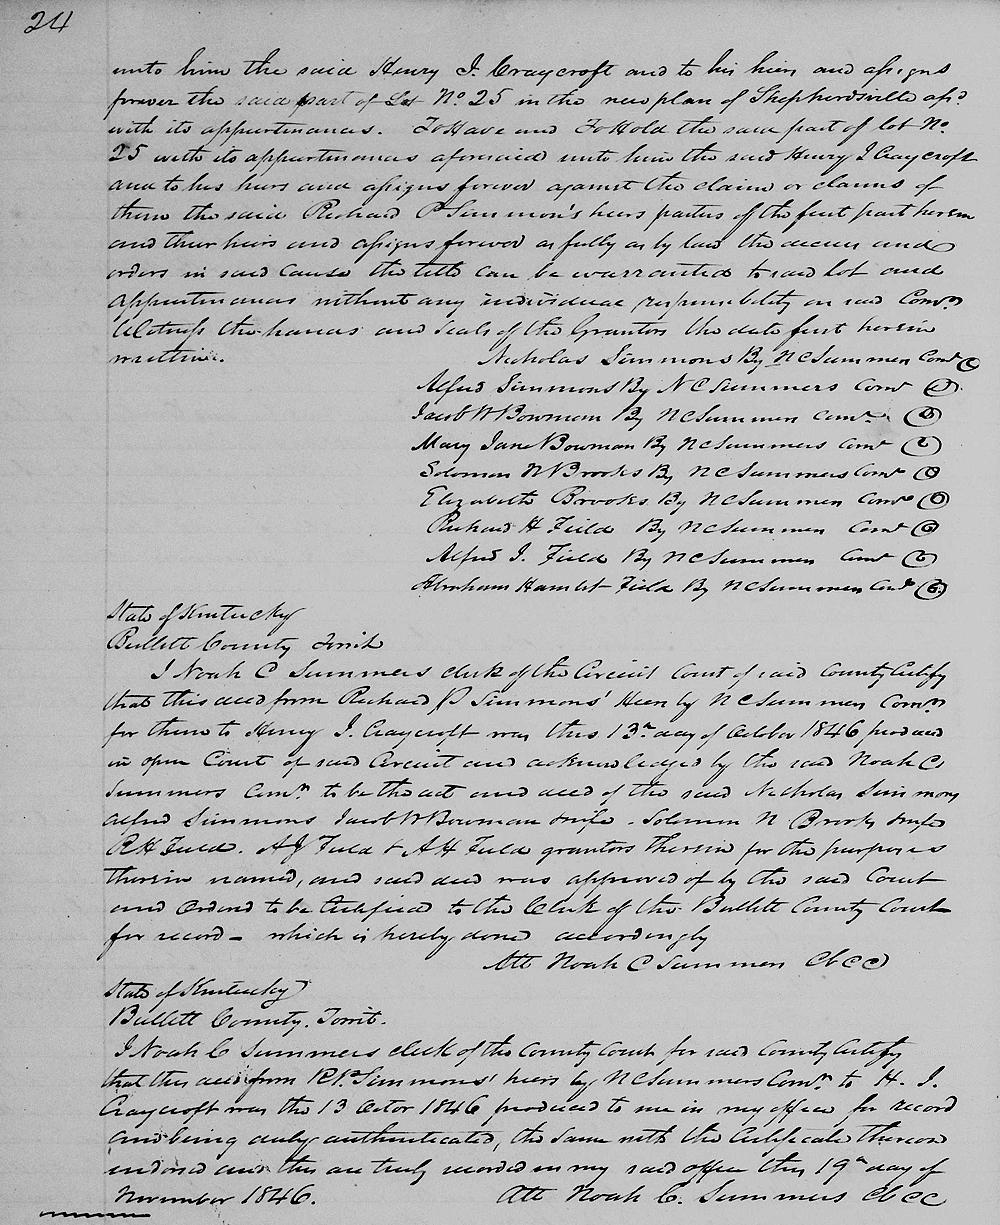 24
unto him the said Henry I. Craycroft and to his heirs and assigns
forever the said part of Lot No. 25 in the new plan of Shepherdsville afsd
with its appurtenances. To Have and To Hold the said part of lot No.
25 with its appurtenances aforesaid unto him the said Henry I Craycroft
and to his heirs and assigns forever against the claim or claims of
them the said Richard P Simmon's heirs parties of the first part herein
and their heirs and assigns forever as fully as by law the decree and
orders in said Cause the title can be warranted to said lot and
appurtenances without any individual responsibility on said Comr
Witness the hands and seals of the Grantors the date first herein
written. Nicholas Simmons By N C Summers Comr
Alfred Simmons By N C Summers Comr
Jacob W Bowman By N C Summers Comr
Mary Jane Bowman By N C Summers Comr
Solomon N Brooks By N C Summers Comr
Elizabeth Brooks By N C Summers Comr
Richard H Field By N C Summers Comr
Alfred J. Field By N C Summers Comr
Abraham Hamlet Field By N C Summers Comr
State of Kentucky
Bullett County Towit
I Noah C Summers clerk of the Circuit Court of said County Certify
that this deed from Richard P Simmons' Heirs by N C Summers Comr
for them to Henry I. Craycroft was this 13th day of October 1846 produced
in open Court of said Circuit and acknowledged by the said Noah C
Summers Comr to be the act and deed of the said Nicholas Simmons
Alfred Simmons Jacob W Bowman & wife. Solomon N Brooks & wife
R H Field. A J Field & A H Field grantors therein for the purposes
therein named, and said deed was approved of by the said Court
and Ordered to be Certified to the Clerk of the Bullett County Court
for record - which is hereby done accordingly
Att Noah C Summers Cbcc
State of Kentucky
Bullett County. Towit.
I Noah C Summers clerk of the County Court for said County Certify
that this deed from R P. Simmons' heirs by N C Summers Comr to H. I.
Craycroft was the 13 Octor 1846 produced to me in my office for record
and being duly authenticated, the same with the Certificate thereon
endorsed and this are truly recorded in my said office this 19th day of
November 1846. Att Noah C. Summers Cbcc